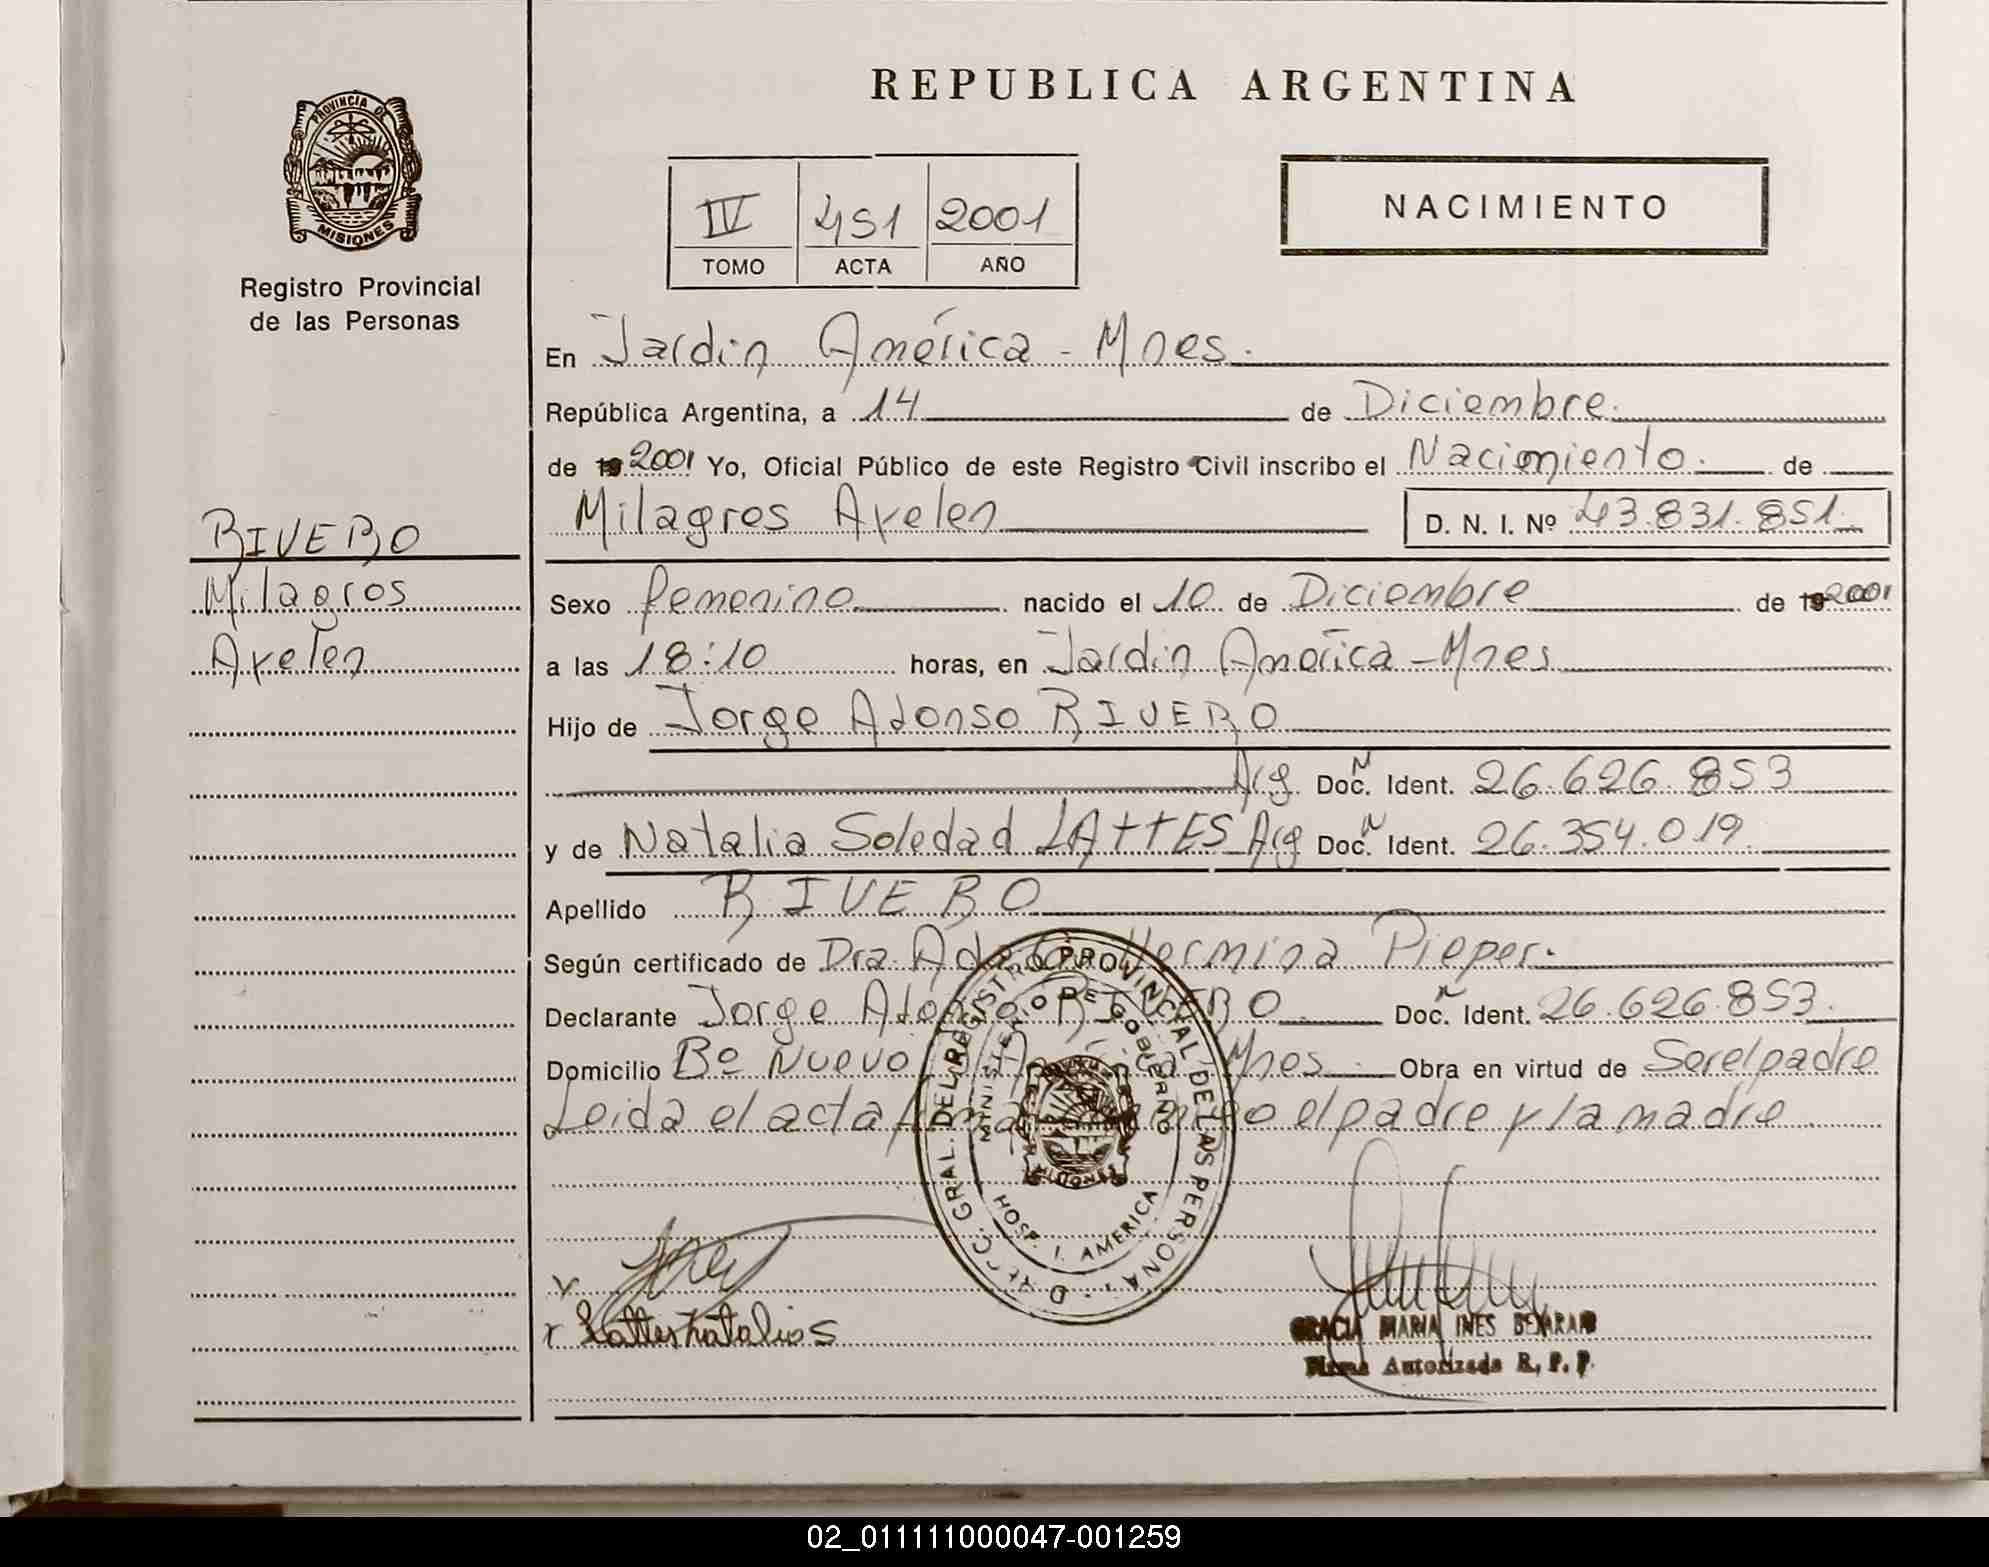 REPUBLICA ARGENTINA
PROVINCIA DE
MISIONES
Registro Provincial
de las Personas
IV 451 2001
TOMO ACTA AÑO
NACIMIENTO
En Jardin América - Mnes.
República Argentina, a 14 de Diciembre.
de 19 2001 Yo, Oficial Público de este Registro Civil inscribo el Nacimiento. de
Milagros Axelen D. N. I. Nº 43.831.851.
RIVERO
Milagros
Axelen
Sexo femenino nacido el 10 de Diciembre de 19 2001
a las 18:10 horas, en Jardin América - Mnes
Hijo de Jorge Alonso RIVERO
Arg Doc. N Ident. 26.626.853
y de Natalia Soledad LATTES Arg Doc. N Ident. 26.354.019.
Apellido RIVERO
Según certificado de Dra. Hermina Pieper.
Declarante Jorge RIVERO Doc. N Ident. 26.626.853.
Domicilio Bº Nuevo Mnes. Obra en virtud de Ser el padre
Leida el acta el padre y la madre
GRAL. DEL REGISTRO PROVINCIAL DE LAS PERSONAS
MINISTERIO DE GOBIERNO
HOSP. J. AMERICA
MISIONES
x
x Lattes Natalia S
GRACIA MARIA INES
Firma Autorizada R. P. P.
02_011111000047-001259